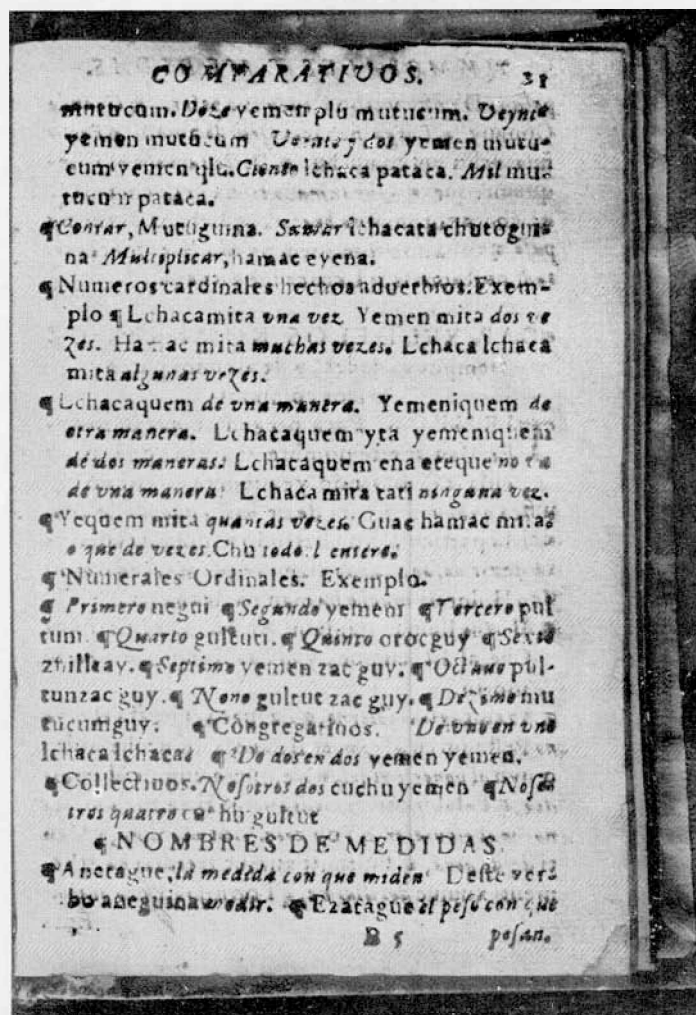 COMPARATIVOS. 31
mutucum. Doze yemen plu mutucum. Veynte
yemen mutucum Veinte y dos yemen mutu-
cum yemen qlu. Ciento lchaca pataca. Mil mu-
tucum pataca.
¶Contar, Mutuguina. Sumar lchacata chutogui-
na Multiplicar, hamac eyena.
¶Numeros cardinales hechos aduerbios. Exem-
plo ¶Lchacamita vna vez Yemen mita dos ve
zes. Hamac mita muchas vezes. Lchaca lchaca
mita algunas vezes.
¶Lchacaquem de vna manera. Yemeniquem de
otra manera. Lchacaquem yta yemeniquem
de dos maneras. Lchacaquem ena eteque no de
de vna manera Lchaca mita tati ninguna vez.
¶Yequem mita quantas vezes. Guac hamac mita
o que de vezes. Chu todo l entero.
¶Numerales Ordinales. Exemplo.
¶ Primero negui ¶Segundo yemeni ¶Tercero pul
tum. ¶Quarto gultuti. ¶Quinto orocguy ¶Sexto
zhilleay. ¶Septimo yemen zac guy. ¶Octauo pul-
tunzac guy. ¶ Nono gultut zac guy. ¶Dezimo mu
tucumguy. ¶Congregatiuos. De vno en vno
lchaca lchaca. ¶De dos en dos yemen yemen.
¶Collectiuos. Nosotros dos cuchu yemen ¶Noso
tros quatro cu hu gultut
¶NOMBRES DE MEDIDAS
¶Anetague, la medida con que miden Deste ver-
bo aneguina medir. ¶Ezatague el peso con que
B 5 pesan.